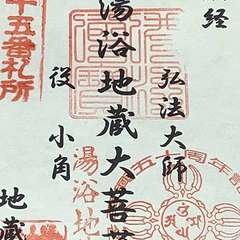 経
弘法大師
湯浴地蔵大菩
役 小角
地蔵
十五番札所
湯浴地
周年